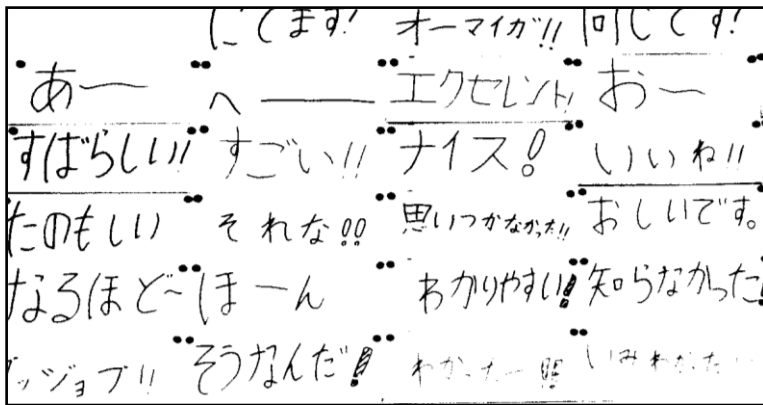 にてます! オーマイガ!! 同じです!
あー へー エクセレント! おー
すばらしい!! すごい!! ナイス! いいね!!
たのもしい それな!! 思いつかなかった!! おしいです。
なるほど~ ほーん わかりやすい! 知らなかった!
グッジョブ!! そうなんだ! わかったー!! いみわかった